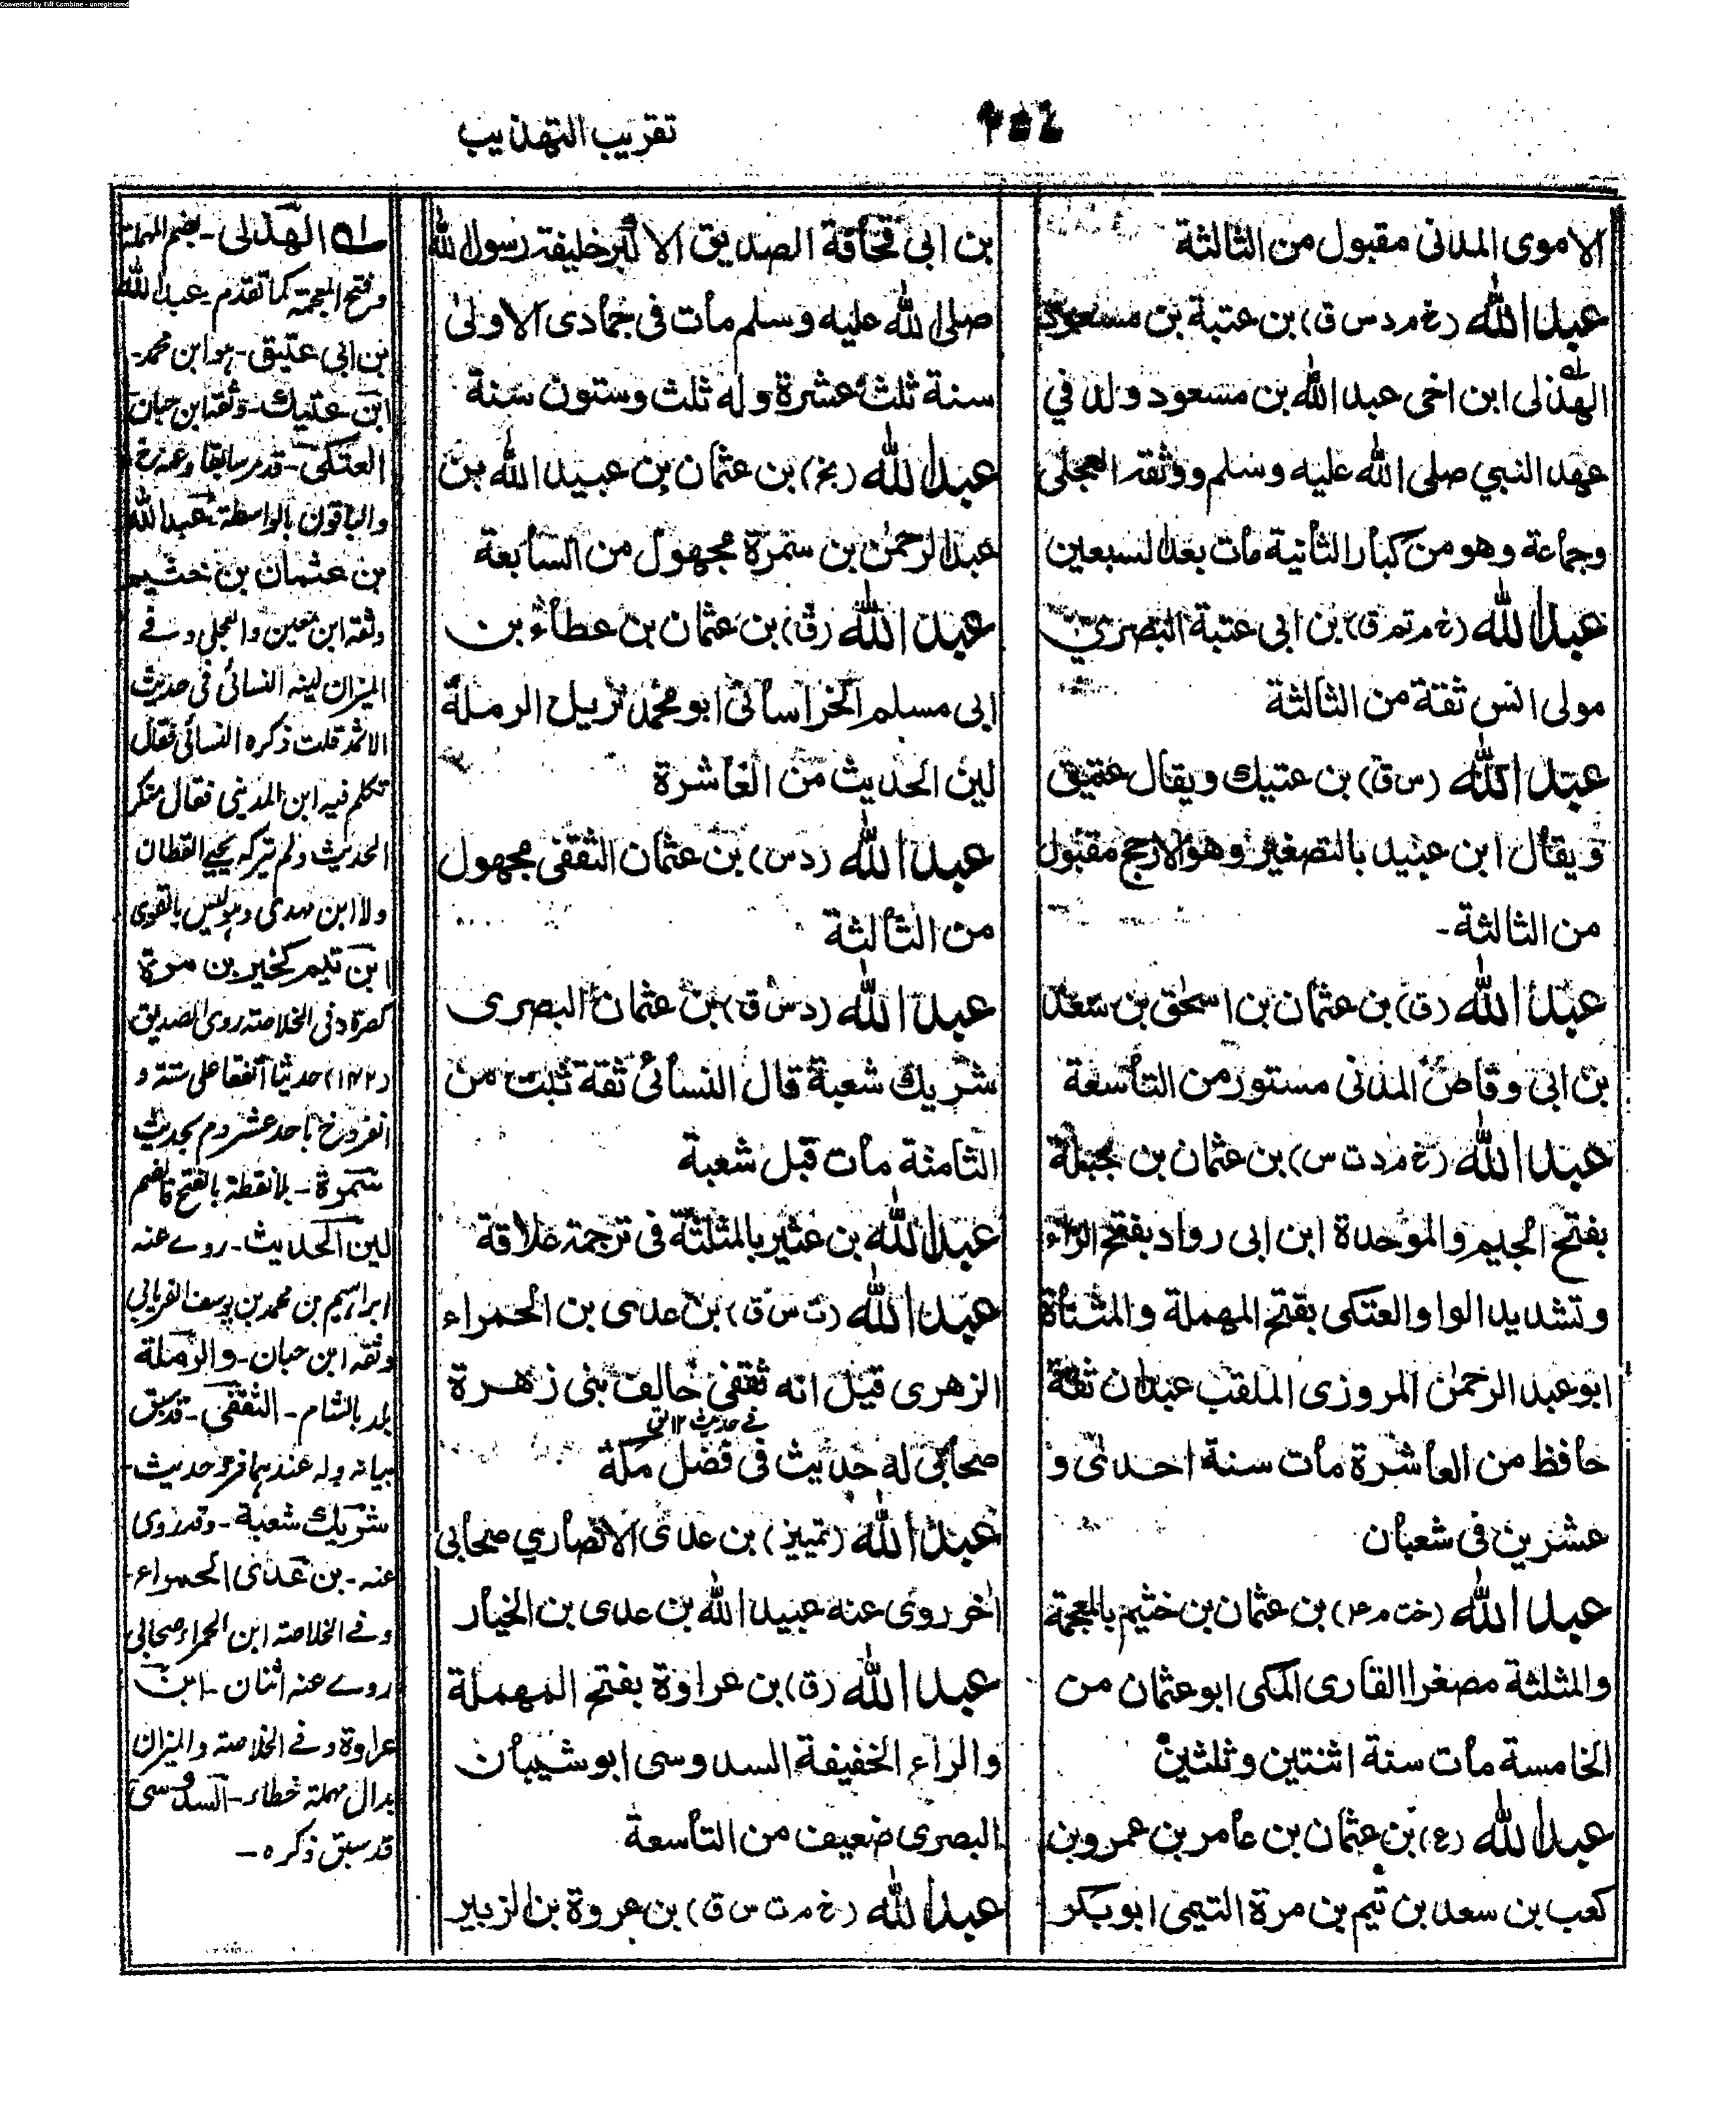 Converted by Tiff Combine - unregistered
تقريب التهذيب
الاموى المدنى مقبول من الثالثة
عبد الله (خ م د س ق) بن عتبة بن مسعود
الهذلى ابن اخى عبد الله بن مسعود ولد في
عهد النبي صلى الله عليه وسلم ووثقه العجلى
وجماعة وهو من كبار الثانية مات بعد السبعين
عبد الله (خ م تم ق) بن ابى عتبة البصري
مولى انس ثقة من الثالثة
عبد الله (س ق) بن عتيك ويقال عتيق
ويقال ابن عبيد بالتصغير وهو الارجح مقبول
من الثالثة -
عبد الله (ق) بن عثمان بن اسحق بن سعد
بن ابى وقاص المدنى مستور من التاسعة
عبد الله (خ م د ت س) بن عثمان بن جبلة
بفتح الجيم والموحدة ابن ابى رواد بفتح الراء
وتشديد الواو العتكى بفتح المهملة والمثناة
ابو عبد الرحمن المروزى الملقب عبدان ثقة
حافظ من العاشرة مات سنة احدى و
عشرين فى شعبان
عبد الله (خت م ع) بن عثمان بن خثيم بالمعجمة
والمثلثة مصغرا القارى المكى ابو عثمان من
الخامسة مات سنة اثنتين وثلثين
عبد الله (ع) بن عثمان بن عامر بن عمرو بن
كعب بن سعد بن تيم بن مرة التيمى ابو بكر
بن ابى قحافة الصديق الاكبر خليفة رسول الله
صلى الله عليه وسلم مات فى جمادى الاولى
سنة ثلث عشرة وله ثلث وستون سنة
عبد الله (بخ) بن عثمان بن عبيد الله بن
عبد الرحمن بن سمرة مجهول من السابعة
عبد الله (ق) بن عثمان بن عطاء بن
ابى مسلم الخراسانى ابو محمد نزيل الرملة
لين الحديث من العاشرة
عبد الله (د س) بن عثمان الثقفى مجهول
من الثالثة
عبد الله (د س ق) بن عثمان البصرى
شريك شعبة قال النسائى ثقة ثبت من
الثامنة مات قبل شعبة
عبد الله بن عثير بالمثلثة فى ترجمة علاقة
عبد الله (ت س ق) بن عدى بن الحمراء
الزهرى قيل انه ثقفى حالف بنى زهرة
صحابى له حديث فى فضل مكة
عبد الله (تمييز) بن عدى الانصاري صحابى
اخر روى عنه عبيد الله بن عدى بن الخيار
عبد الله (ق) بن عراوة بفتح المهملة
والراء الخفيفة السدوسى ابو شيبان
البصرى ضعيف من التاسعة
عبد الله (خ م ت س ق) بن عروة بن الزبير
له الهذلى - بضم المهملة
وفتح المعجمة كما تقدم - عبد الله
بن ابى عتيق - هو ابن محمد -
ابن عتيك - وثقه ابن حبان
العتكى - قدم سابقا وعنه خ
والباقون بالواسطة - عبد الله
بن عثمان بن خثيم
وثقه ابن معين والعجلى وفے
الميزان لينه النسائى فى حديث
الاثمد قلت ذكره النسائى فقال
تكلم فيه ابن المدينى فقال منكر
الحديث ولم يتركه يحيى القطان
ولا ابن مهدى وهو ليس بالقوى
ابن تيم كخير بن مرة
كصرة وفى الخلاصة روى الصديق
(١٤٢) حديثا اتفقا على ستة و
انفرد خ باحد عشر و م بحديث
سمرة - بلا نقطة بالفتح فالضم
لين الحديث - روے عنه
ابراهيم بن محمد بن يوسف الفريابى
وثقه ابن حبان - والرملة
بلد بالشام - الثقفى - قد سبق
بيانه وله عندهما فرد حديث -
شريك شعبة - وقد روى
عنه - بن عدى الحمراء -
وفے الخلاصة ابن الحمراء صحابى
روے عنه اثنان - ابن
عراوة وفے الخلاصة والميزان
بدال مهملة خطاء - السدوسى
قد سبق ذكره -